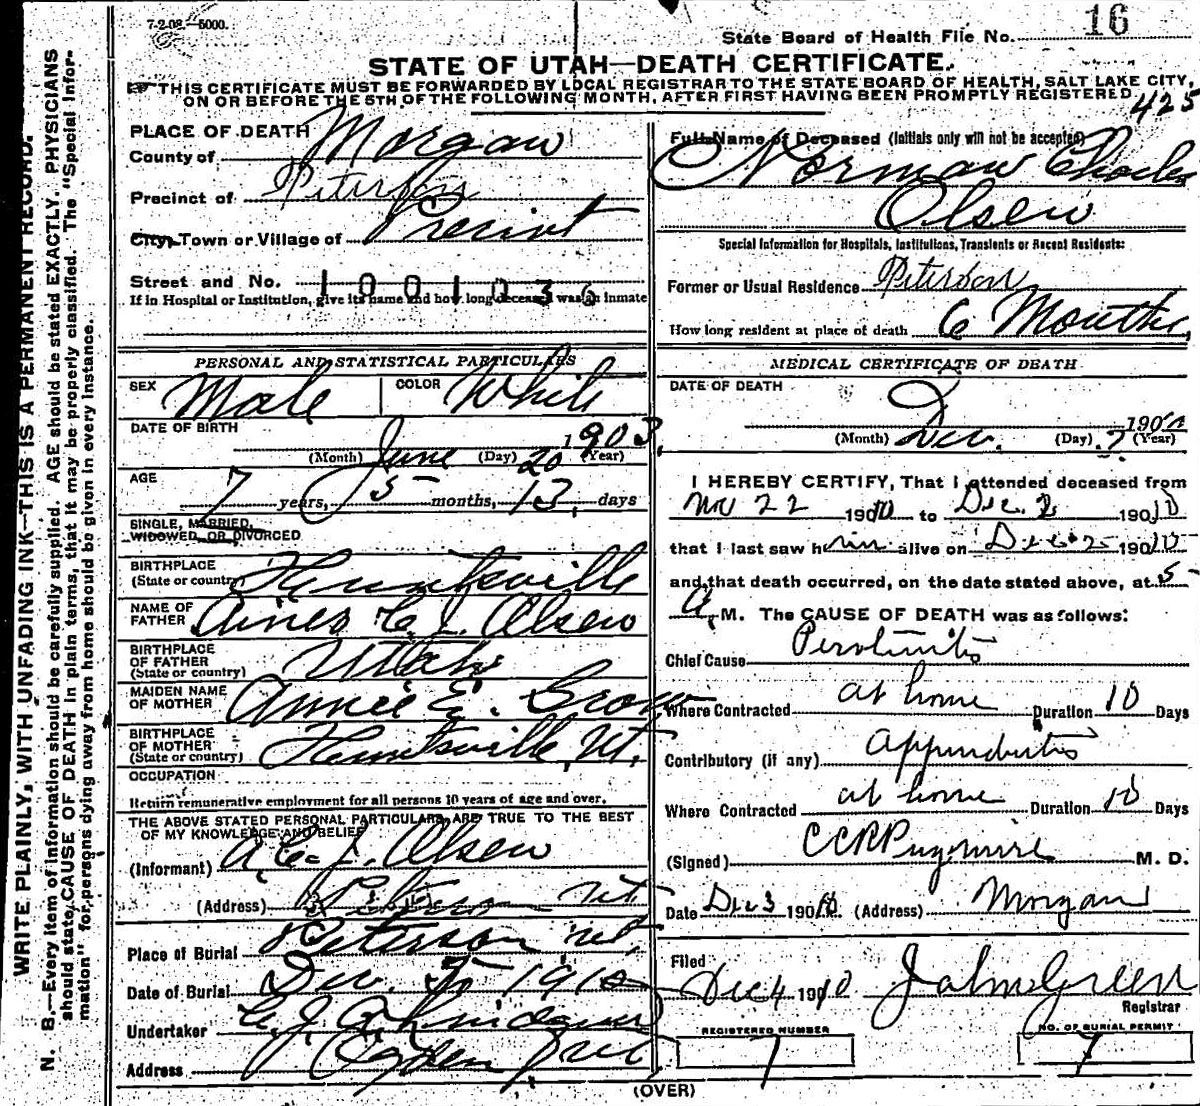 7-2-08.—5000.
State Board of Health File No. 16
STATE OF UTAH—DEATH CERTIFICATE.
THIS CERTIFICATE MUST BE FORWARDED BY LOCAL REGISTRAR TO THE STATE BOARD OF HEALTH, SALT LAKE CITY,
ON OR BEFORE THE 5TH OF THE FOLLOWING MONTH, AFTER FIRST HAVING BEEN PROMPTLY REGISTERED
425
WRITE PLAINLY, WITH UNFADING INK—THIS IS A PERMANENT RECORD.
N. B.—Every item of information should be carefully supplied. AGE should be stated EXACTLY. PHYSICIANS
should state CAUSE OF DEATH in plain terms, that it may be properly classified. The "Special Infor-
mation" for persons dying away from home should be given in every instance.
PLACE OF DEATH
County of Morgan
Precinct of Peterson
City, Town or Village of Precint
Street and No. 1001036
If in Hospital or Institution, give its name and how long deceased was an inmate
PERSONAL AND STATISTICAL PARTICULARS
SEX Male COLOR White
DATE OF BIRTH
June 20 1903
(Month) (Day) (Year)
AGE 7 years, 5 months, 13 days
SINGLE, MARRIED,
WIDOWED, OR DIVORCED
BIRTHPLACE
(State or country) Huntsville
NAME OF
FATHER C. J. Olsen
BIRTHPLACE
OF FATHER
(State or country) Utah
MAIDEN NAME
OF MOTHER Annie E.
BIRTHPLACE
OF MOTHER
(State or country) Huntsville, Ut.
OCCUPATION
Return remunerative employment for all persons 10 years of age and over.
THE ABOVE STATED PERSONAL PARTICULARS ARE TRUE TO THE BEST
OF MY KNOWLEDGE AND BELIEF
(Informant) A. C. J. Olsen
(Address) Peterson Ut.
Place of Burial Peterson Ut.
Date of Burial Dec. 5 1910
Undertaker
Address Ogden Ut
Full Name of Deceased (Initials only will not be accepted)
Norman Charles
Olsen
Special Information for Hospitals, Institutions, Transients or Recent Residents:
Former or Usual Residence Peterson
How long resident at place of death 6 Months
MEDICAL CERTIFICATE OF DEATH
DATE OF DEATH
Dec. 190
(Month) (Day) (Year)
I HEREBY CERTIFY, That I attended deceased from
Nov 22 1910 to Dec. 2 1910
that I last saw him alive on Dec 2 1910
and that death occurred, on the date stated above, at 5
A. M. The CAUSE OF DEATH was as follows:
Chief Cause Peritonitis
Where Contracted at home Duration 10 Days
Contributory (if any) appendicitis
Where Contracted at home Duration 10 Days
(Signed) M. D.
Date Dec 3 1910 (Address) Morgan
Filed
Dec 4 1910 John Green
Registrar
REGISTERED NUMBER
7
NO. OF BURIAL PERMIT
7
(OVER)